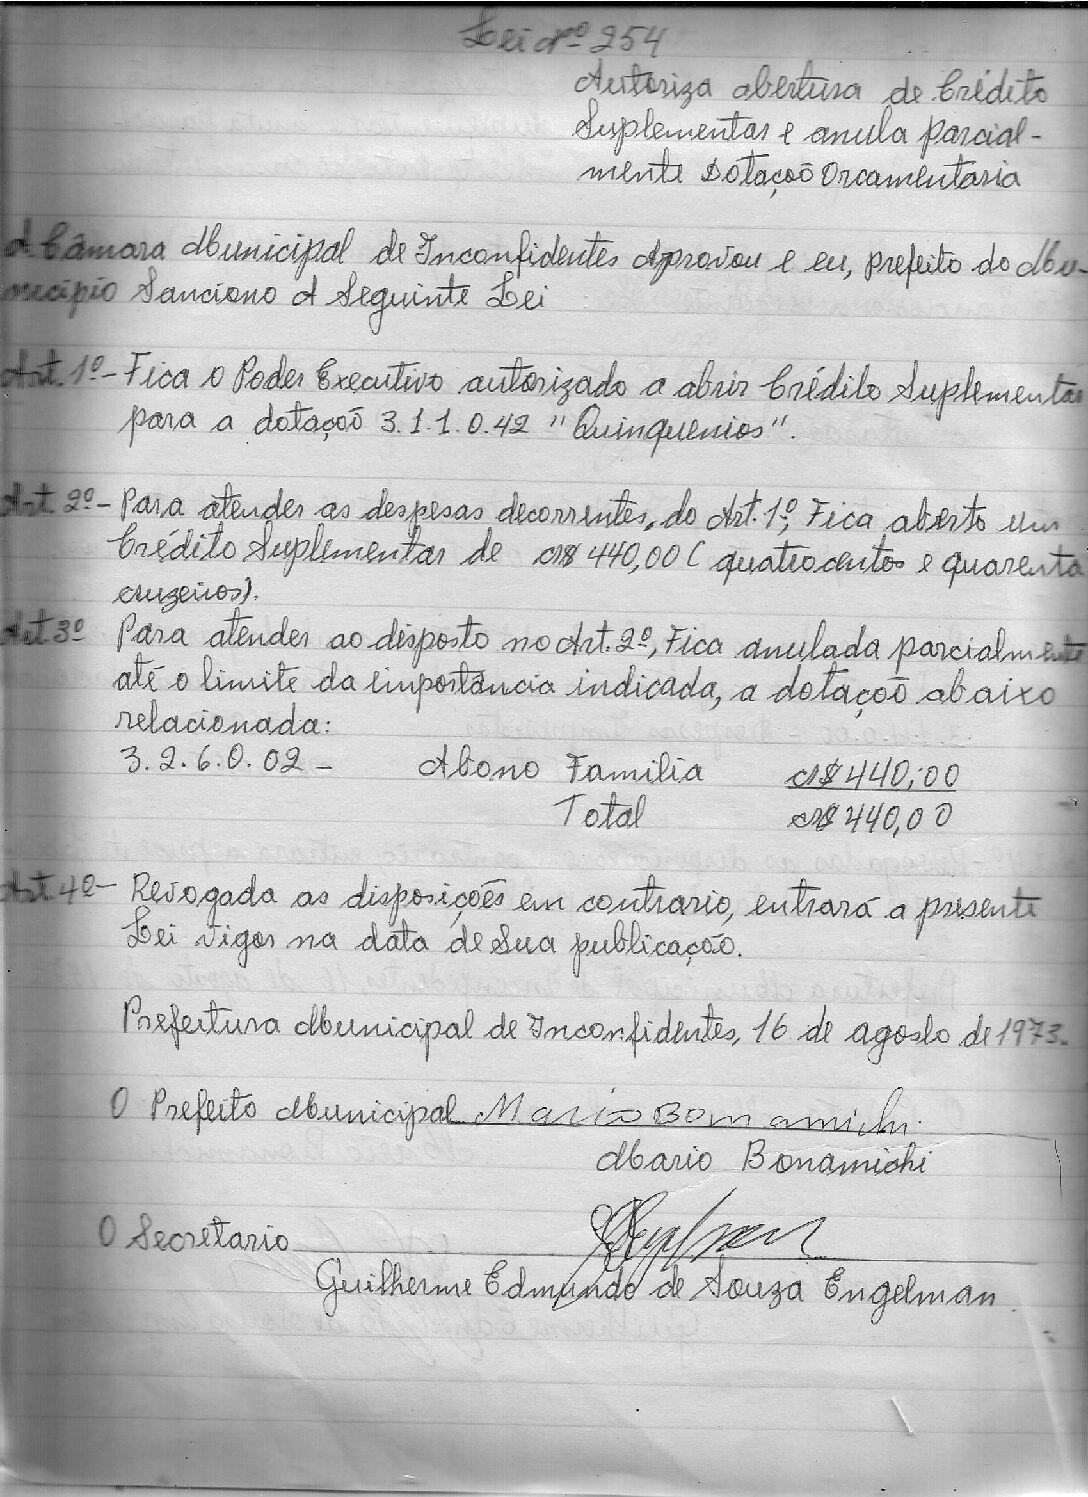 Lei nº 254
Autoriza abertura de Crédito
Suplementar e anula parcial-
mente Dotaçoõ Orcamentaria
A Câmara Municipal de Inconfidentes Aprovou e eu, prefeito do Mu-
nicipio Sanciono A Seguinte Lei
Art. 1º - Fica o Poder Executivo autorizado a abrir Crédito Suplementar
para a dotaçoõ 3.1.1.0.42 "Quinquenios".
Art. 2º - Para atender as despesas decorrentes, do Art. 1º, Fica aberto um
Crédito Suplementar de cr$ 440,00 ( quatrocentos e quarenta
cruzeiros).
Art 3º Para atender ao disposto no Art. 2º, Fica anulada parcialmente
até o limite da importância indicada, a dotaçoõ abaixo
relacionada:
3.2.6.0.02 - Abono Familia cr$ 440,00
Total cr$ 440,00
Art. 4º - Revogada as disposições em contrario, entrará a presente
Lei vigor na data de Sua publicação.
Prefeitura Municipal de Inconfidentes, 16 de agosto de 1973.
O Prefeito Municipal Mario Bonamichi
Mario Bonamichi
O Secretario
Guilherme Edmundo de Souza Engelman